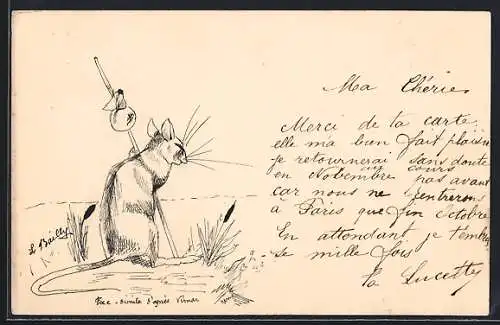 Ma Chérie
Merci de ta carte
elle ma bien fait plaisir
je retournerai sans doute
en Novembre cours pas avant
car nous ne rentrerons
à Paris que fin octobre
En attendant je t'embras
se mille fois
ta Lucette
L Bailly
Fac-similé d'après